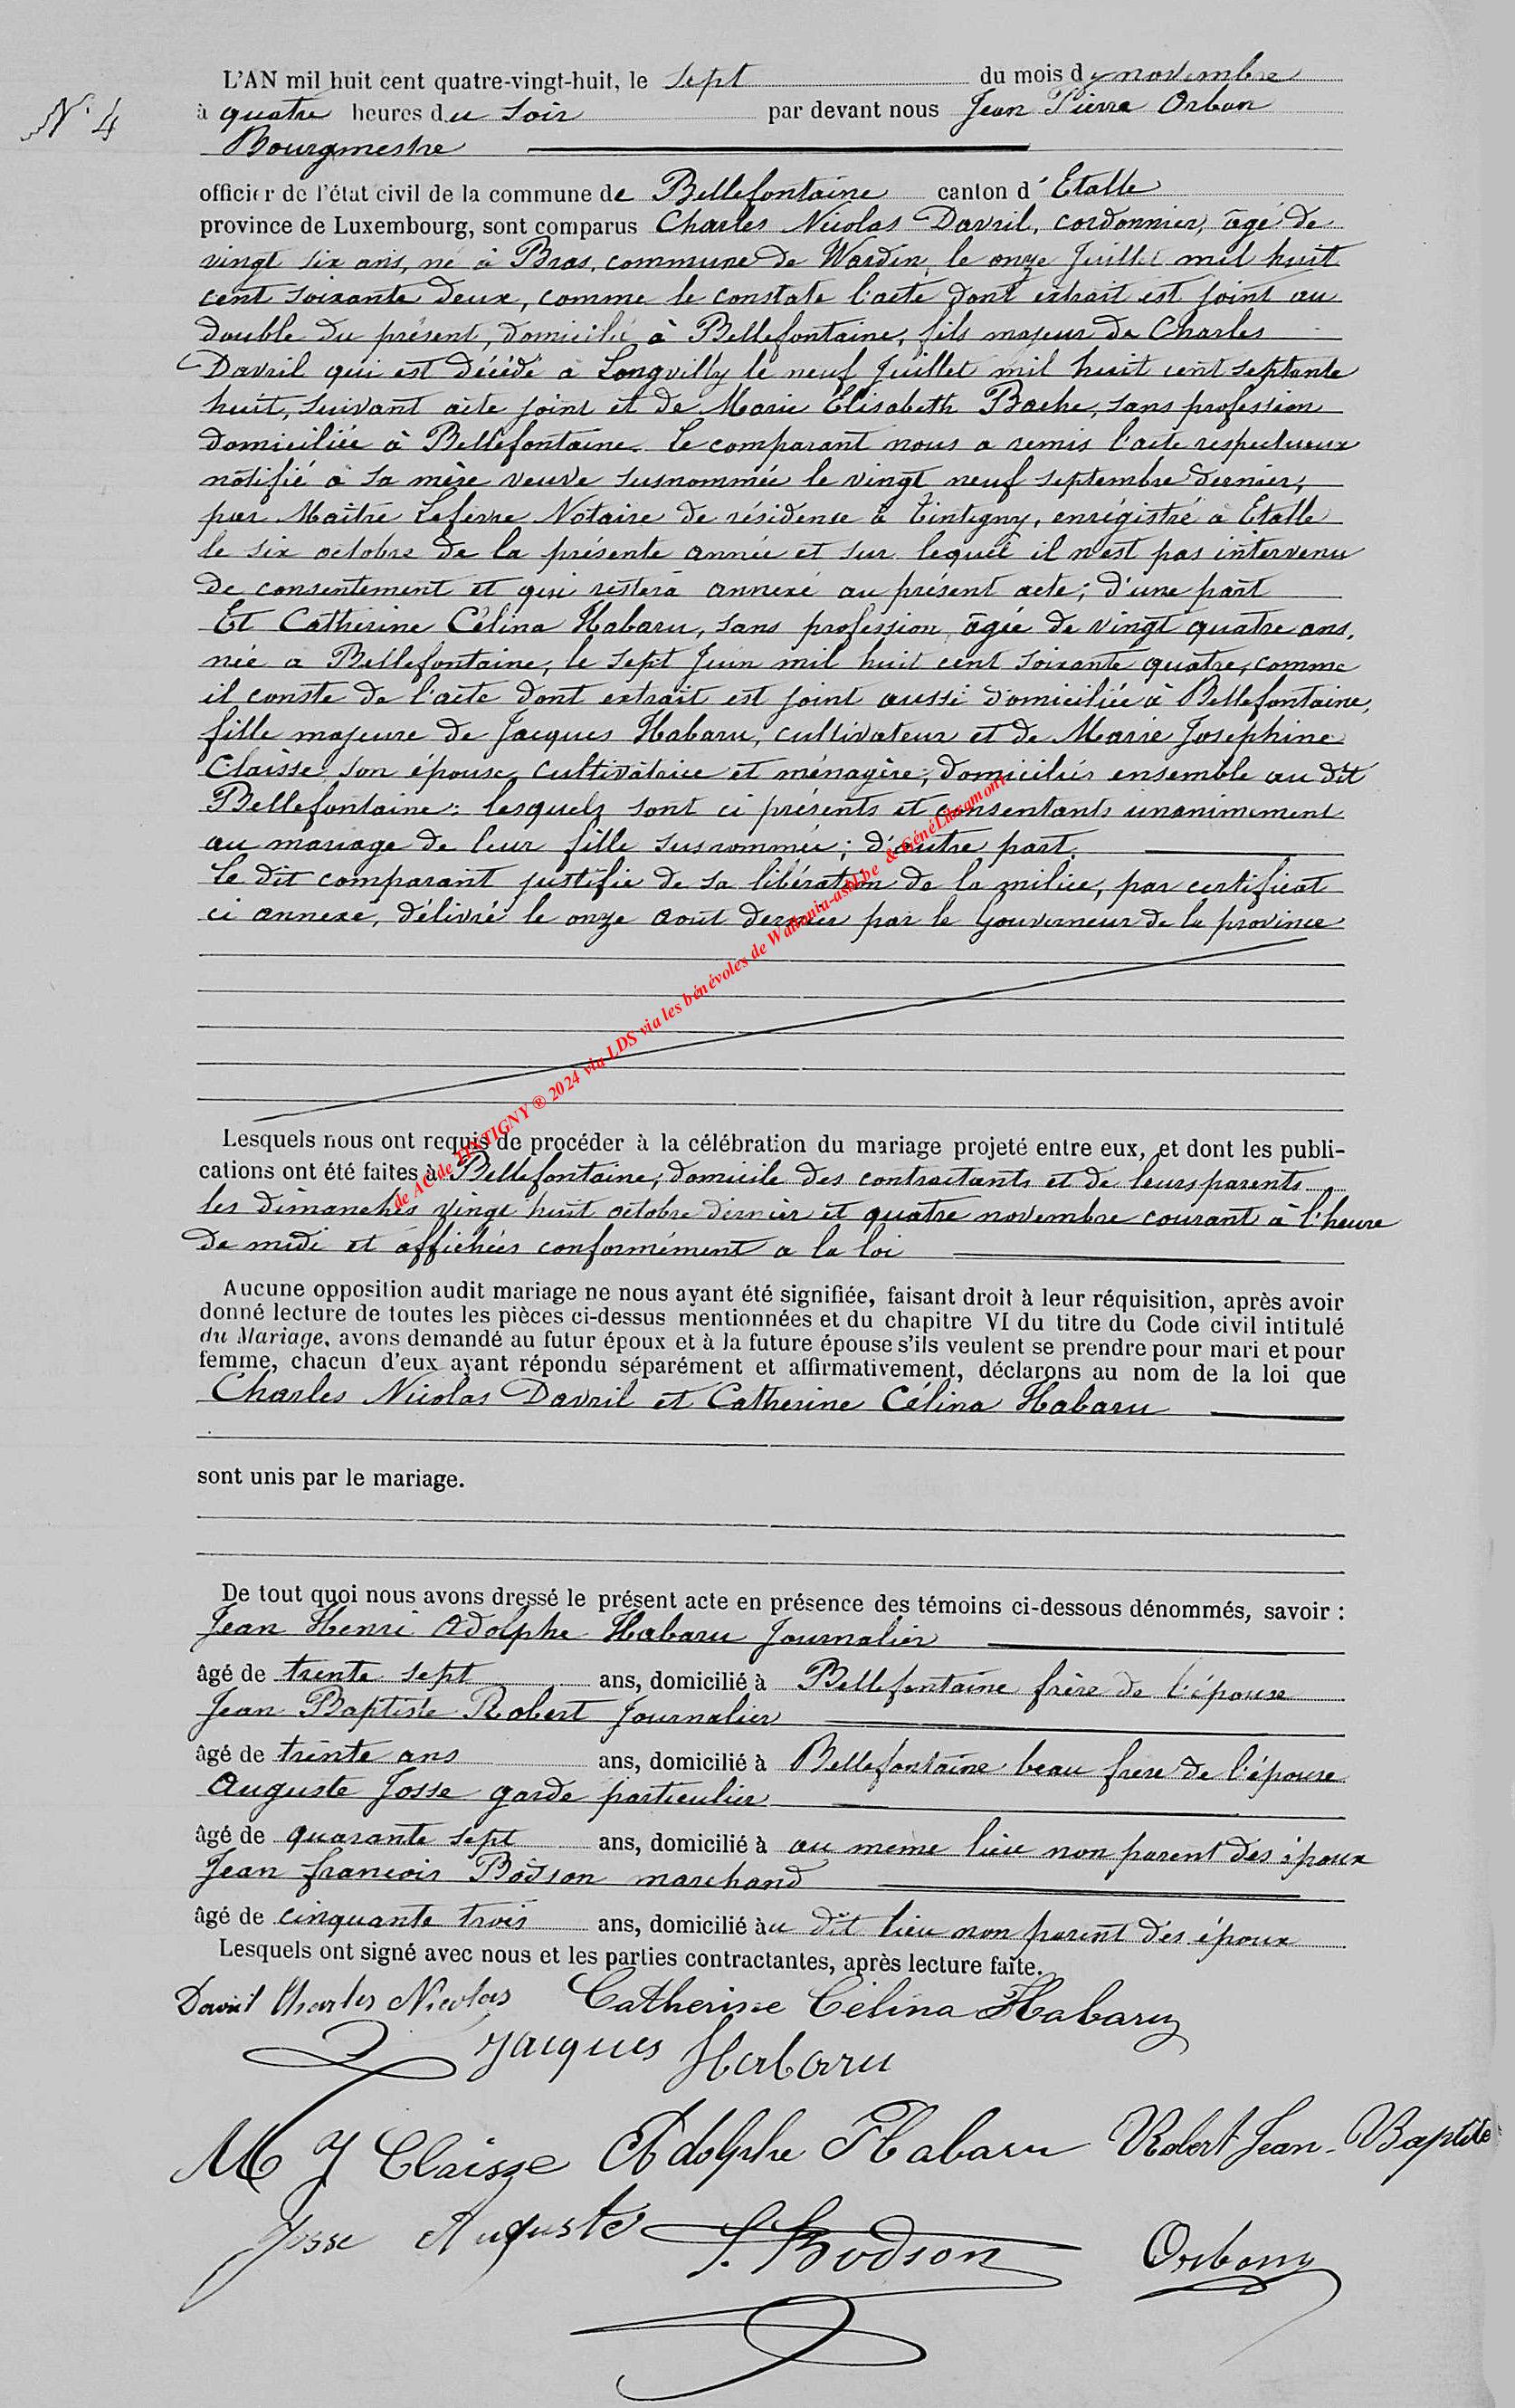 N° 4
L'AN mil huit cent quatre-vingt-huit, le sept du mois de novembre
à quatre heures du soir par devant nous Jean Pierre Orban
Bourgmestre
officier de l'état civil de la commune de Bellefontaine canton d'Etalle
province de Luxembourg, sont comparus Charles Nicolas Davril, cordonnier, âgé de
vingt six ans, né à Bras, commune de Wardin, le onze Juillet mil huit
cent soixante deux, comme le constate l'acte dont extrait est joint au
double du présent, domicilié à Bellefontaine, fils majeur de Charles
Davril qui est décédé à Longvilly le neuf Juillet mil huit cent septante
huit, suivant acte joint et de Marie Elisabeth Bache, sans profession
domiciliée à Bellefontaine. Le comparant nous a remis l'acte respectueux
notifié à sa mère veuve susnommée le vingt neuf septembre dernier,
par Maître Lefevre Notaire de résidence à Tintigny, enrégistré à Etalle
le six octobre de la présente année et sur lequel il n'est pas intervenu
de consentement et qui restera annexé au présent acte; d'une part
Et Catherine Célina Habaru, sans profession, âgée de vingt quatre ans,
née à Bellefontaine, le sept Juin mil huit cent soixante quatre, comme
il conste de l'acte dont extrait est joint aussi domiciliée à Bellefontaine,
fille majeure de Jacques Habaru, cultivateur et de Marie Joséphine
Claisse son épouse, cultivatrice et ménagère, domiciliés ensemble au dit
Bellefontaine: lesquels sont ci présents et consentants unanimement
au mariage de leur fille susnommée; d'autre part.
Le dit comparant justifie de sa libération de la milice, par certificat
ci annexé, délivré le onze août dernier par le Gouverneur de la province
de AC de TINTIGNY ® 2024 via LDS via les bénévoles de Wallonia-asbl.be & GénéLibramont
Lesquels nous ont requis de procéder à la célébration du mariage projeté entre eux, et dont les publi-
cations ont été faites à Bellefontaine, domicile des contractants et de leurs parents
les dimanches vingt huit octobre dernier et quatre novembre courant à l'heure
de midi et affichées conformément à la loi
Aucune opposition audit mariage ne nous ayant été signifiée, faisant droit à leur réquisition, après avoir
donné lecture de toutes les pièces ci-dessus mentionnées et du chapitre VI du titre du Code civil intitulé
du Mariage, avons demandé au futur époux et à la future épouse s'ils veulent se prendre pour mari et pour
femme, chacun d'eux ayant répondu séparément et affirmativement, déclarons au nom de la loi que
Charles Nicolas Davril et Catherine Célina Habaru
sont unis par le mariage.
De tout quoi nous avons dressé le présent acte en présence des témoins ci-dessous dénommés, savoir :
Jean Henri Adolphe Habaru Journalier
âgé de trente sept ans, domicilié à Bellefontaine frère de l'épouse
Jean Baptiste Robert Journalier
âgé de trente ans ans, domicilié à Bellefontaine beau frère de l'épouse
Auguste Josse garde particulier
âgé de quarante sept ans, domicilié à au même lieu non parent des époux
Jean François Bodson marchand
âgé de cinquante trois ans, domicilié àu dit lieu non parent des époux
Lesquels ont signé avec nous et les parties contractantes, après lecture faite.
Davril Charles Nicolas Catherine Célina Habaru
Jacques Habaru
M J Claisse Adolphe Habaru Robert Jean-Baptiste
Josse Auguste J. Bodson Orban